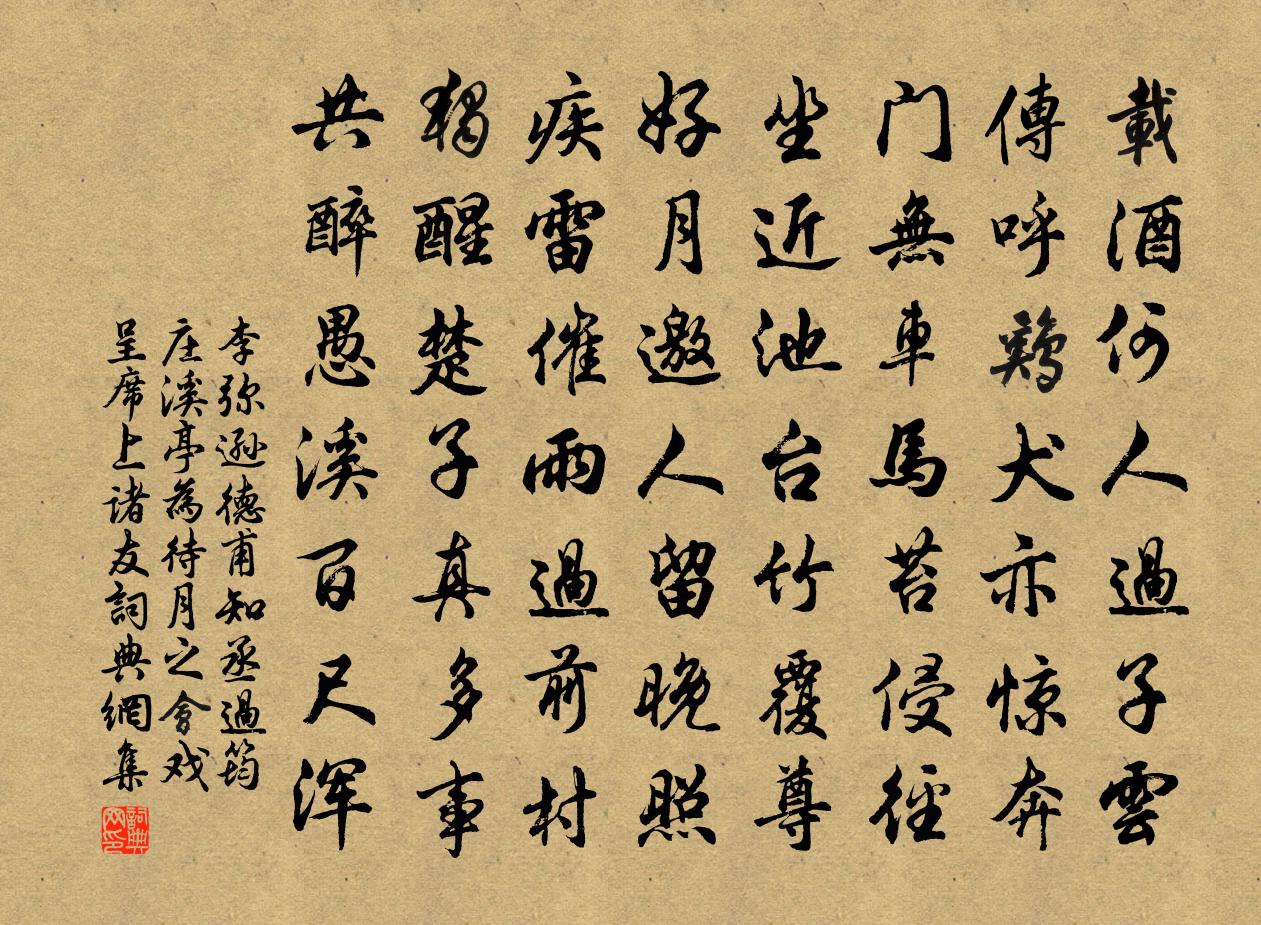 載酒何人過子雲
傳呼鷄犬亦惊奔
门無車馬苔侵径
坐近池台竹覆尊
好月邀人留晚照
疾雷催雨過前村
独醒楚子真多事
共醉愚溪百尺浑
李弥逊德甫知丞過筠
庄溪亭為待月之會戏
呈席上诸友詞典網集
詞典网印